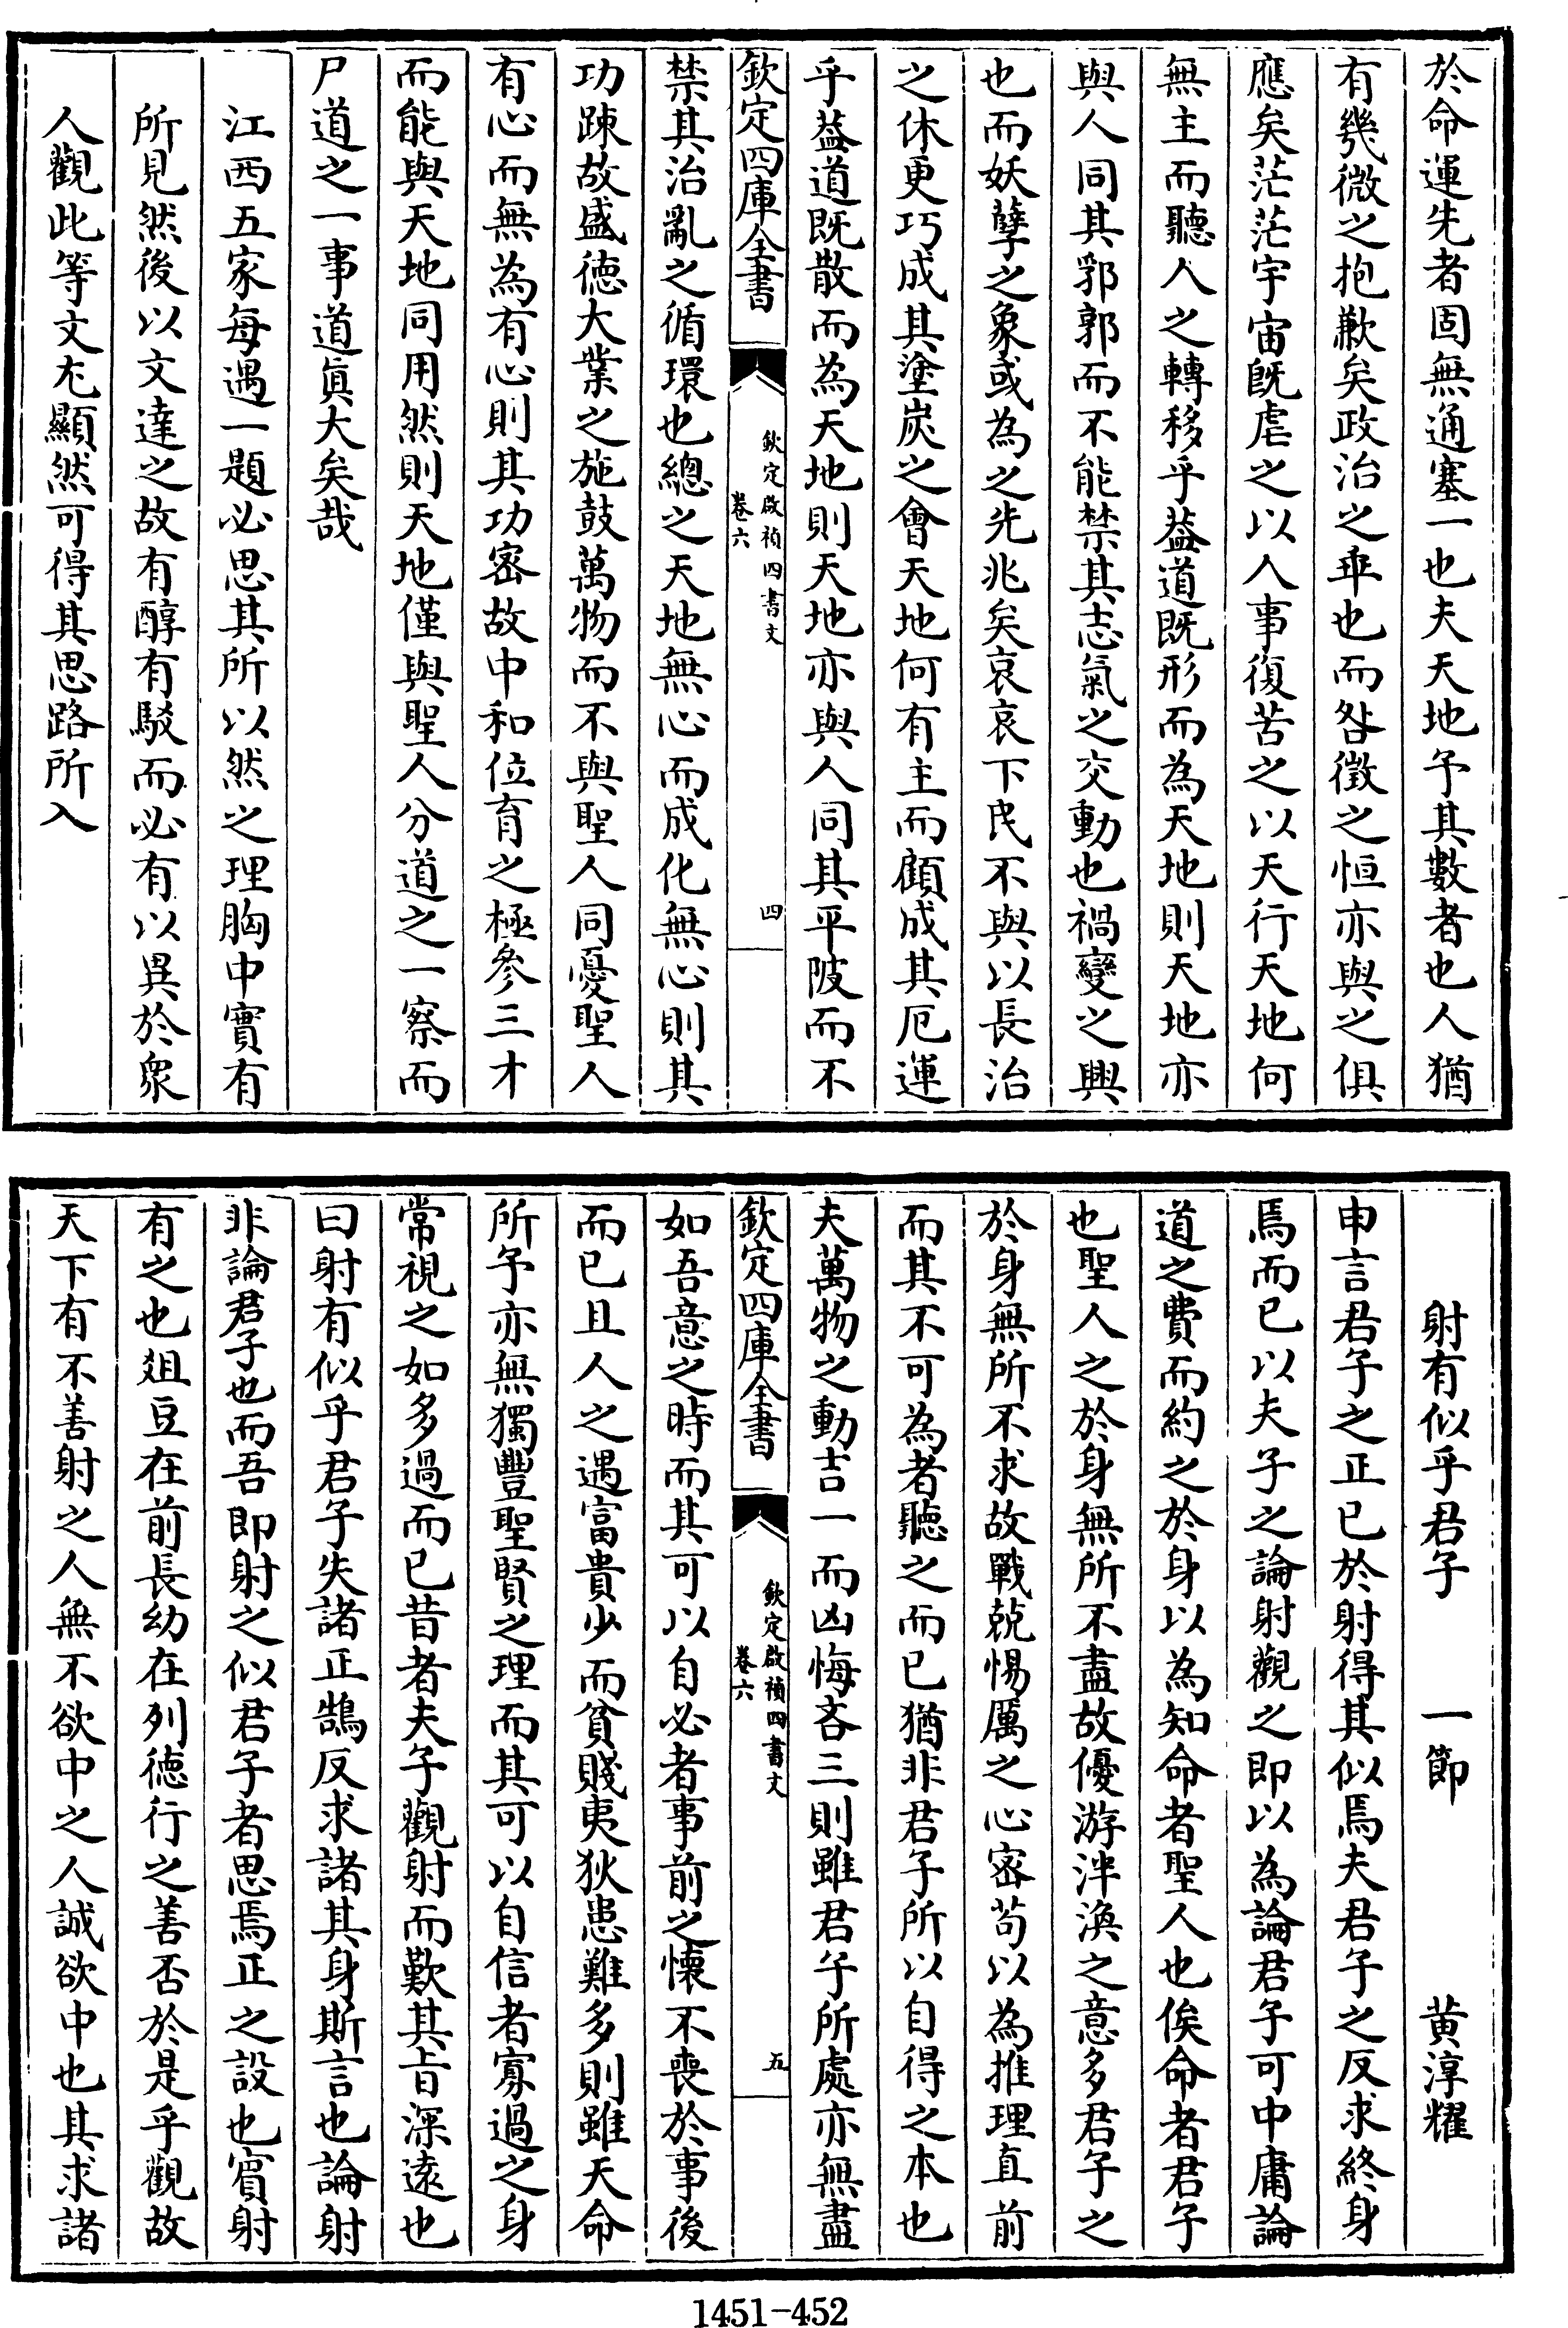 於命運先者固無通塞一也夫天地予其數者也人猶
有幾微之抱歉矣政治之乖也而咎徵之恒亦與之俱
應矣茫茫宇宙既虐之以人事復苦之以天行天地何
無主而聽人之轉移乎葢道既形而為天地則天地亦
與人同其郛郭而不能禁其志氣之交動也禍變之興
也而妖孽之象或為之先兆矣哀哀下民不與以長治
之休更巧成其塗炭之會天地何有主而顧成其厄運
乎葢道既散而為天地則天地亦與人同其平陂而不
欽定四庫全書
欽定啟禎四書文
卷六
四
禁其治亂之循環也總之天地無心而成化無心則其
功踈故盛徳大業之施鼓萬物而不與聖人同憂聖人
有心而無為有心則其功宻故中和位育之極參三才
而能與天地同用然則天地僅與聖人分道之一察而
尸道之一事道眞大矣哉
江西五家每遇一題必思其所以然之理胸中實有
所見然後以文達之故有醇有駁而必有以異於衆
人觀此等文尤顯然可得其思路所入
射有似乎君子 一節 黄淳耀
申言君子之正已於射得其似焉夫君子之反求終身
焉而已以夫子之論射觀之即以為論君子可中庸論
道之費而約之於身以為知命者聖人也俟命者君子
也聖人之於身無所不盡故優游泮渙之意多君子之
於身無所不求故戰兢惕厲之心宻苟以為推理直前
而其不可為者聽之而已猶非君子所以自得之本也
夫萬物之動吉一而凶悔吝三則雖君子所處亦無盡
欽定四庫全書
欽定啟禎四書文
卷六
五
如吾意之時而其可以自必者事前之懐不喪於事後
而已且人之遇富貴少而貧賤夷狄患難多則雖天命
所予亦無獨豐聖賢之理而其可以自信者寡過之身
常視之如多過而已昔者夫子觀射而歎其旨深遠也
曰射有似乎君子失諸正鵠反求諸其身斯言也論射
非論君子也而吾即射之似君子者思焉正之設也賓射
有之也爼豆在前長幼在列徳行之善否於是乎觀故
天下有不善射之人無不欲中之人誠欲中也其求諸
1451-452